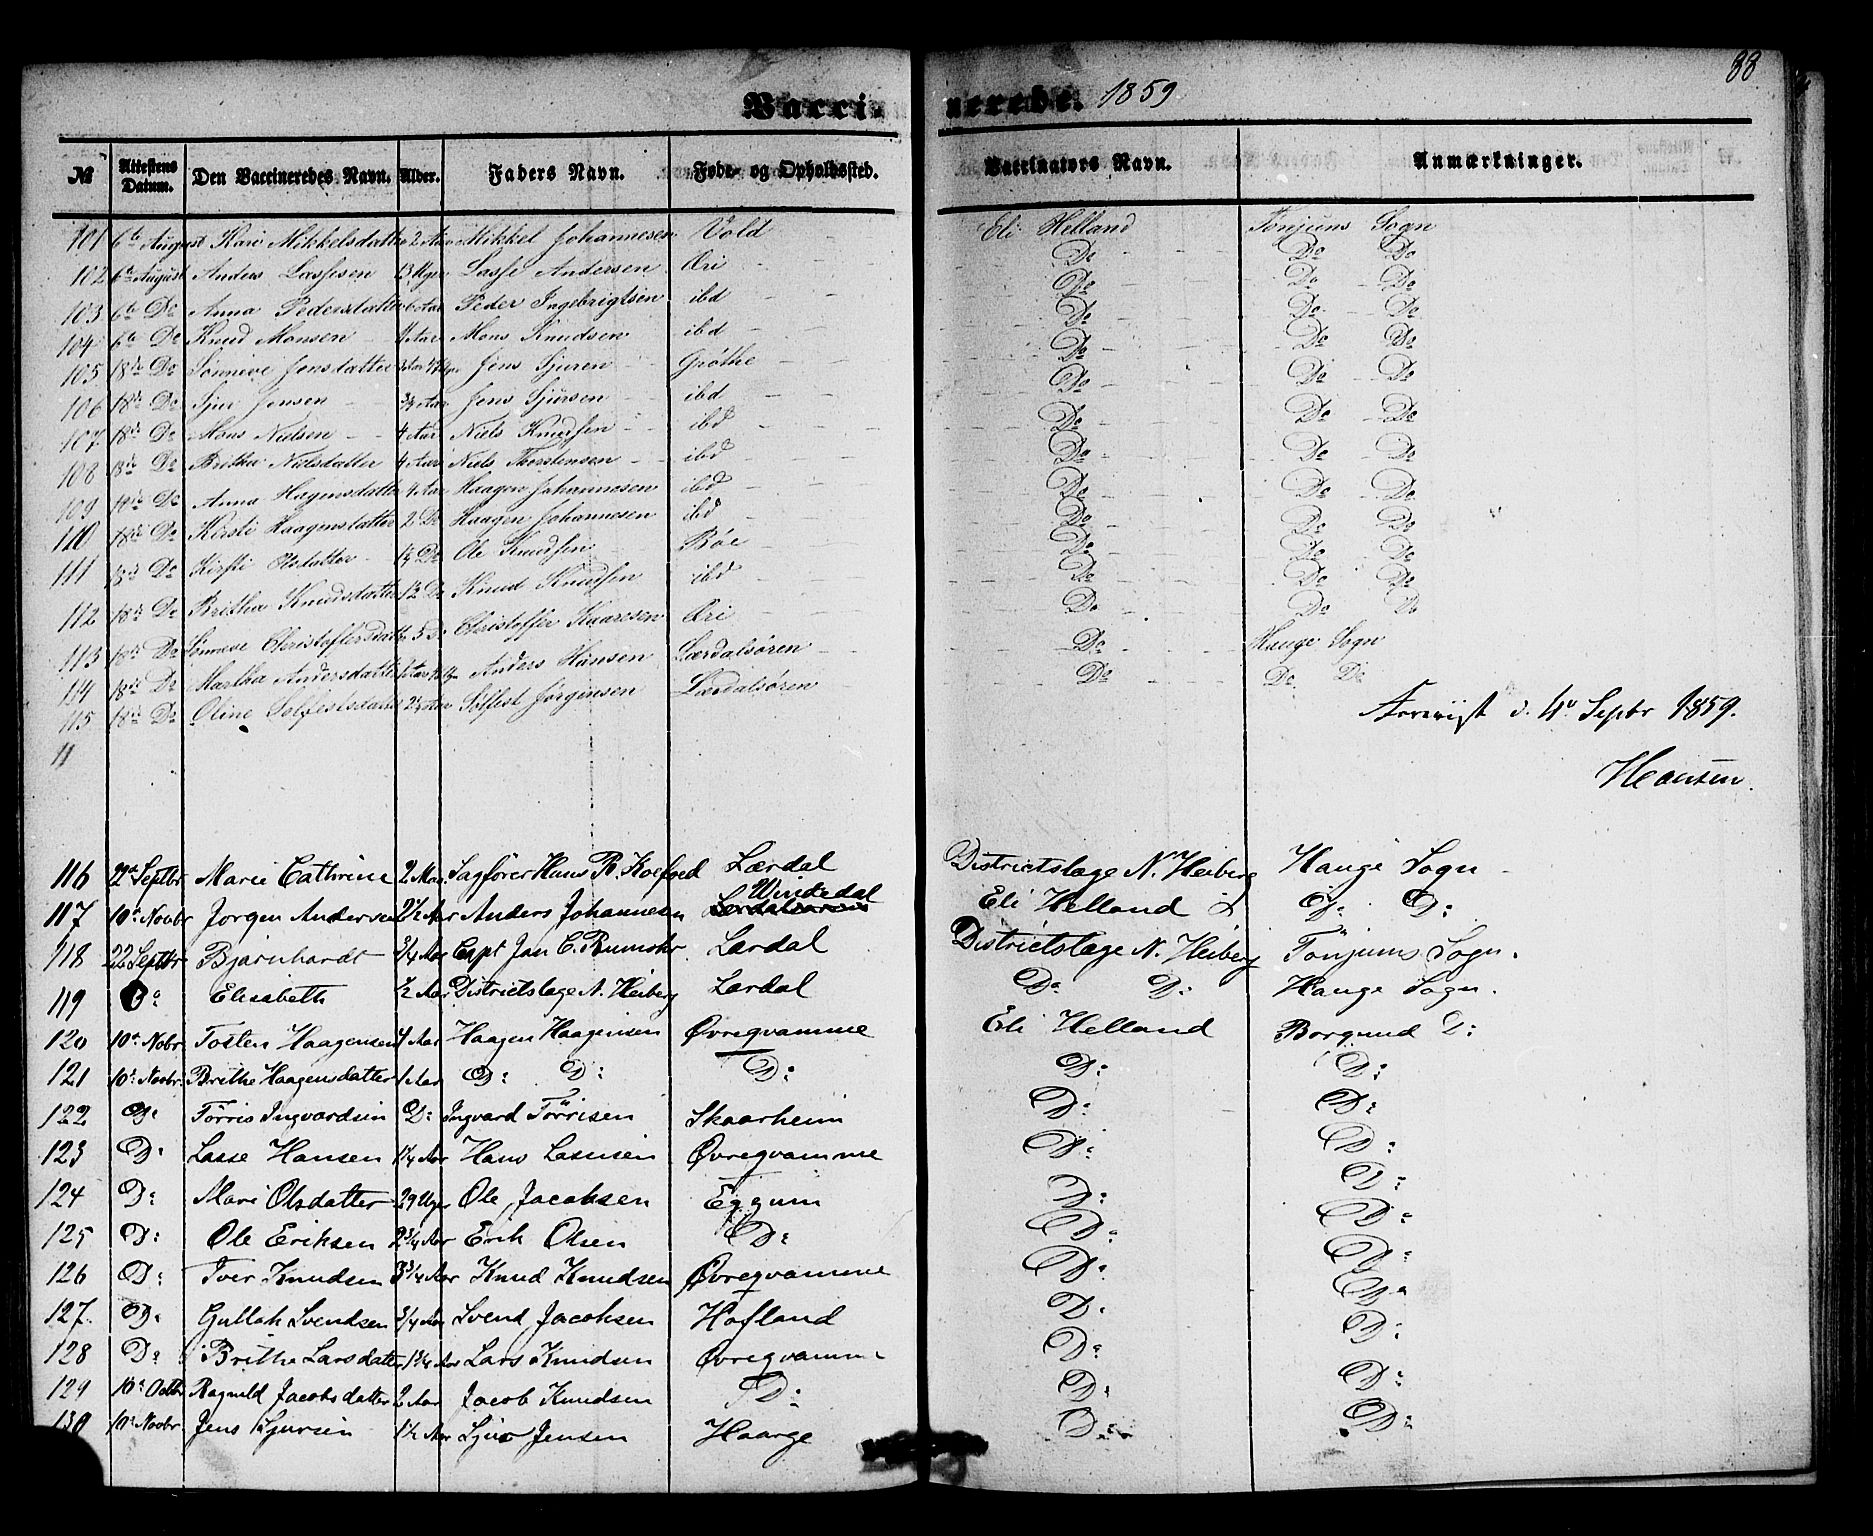 88
Vaccinerede. 1859
№ | Attestens Datum. | Den Vaccineredes Navn. | Alder. | Faders Navn. | Føde- og Opholdssted. | Vaccinators Navn. | Anmærkninger.
101 | 6te August | Kari Mikkelsdatter | 2 Aar | Mikkel Johannesen | Vold | Eli Helland | Tønjums Sogn
102 | 6te August | Anders Lassesen | 13 Uger | Lasse Andersen | Øri | Do | Do Do
103 | 6te Do | Anna Pedersdatter | 6 Aar | Peder Ingebrigtsen | ibd | Do | Do Do
104 | 6te Do | Knud Monsen | Aar | Mons Knudsen | ibd | Do | Do Do
105 | 18de Do | Sønneve Jensdatter | Jens Sjuren | Grøthe | Do | Do Do
106 | 18de Do | Sjur Jensen | 3/4 Aar | Jens Sjursen | ibd | Do | Do Do
107 | 18de Do | Mons Nielsen | 4 Aar | Niels Knudsen | ibd | Do | Do Do
108 | 18de Do | Britha Nielsdatter | 4 Aar | Niels Thorstensen | ibd | Do | Do Do
109 | 18de Do | Anna Hagensdatter | 4 Aar | Haagen Johannesen | ibd | Do | Do Do
110 | 18de Do | Kirsti Haagensdatter | 2 Do | Haagen Johannesen | ibd | Do | Do Do
111 | 18de Do | Kirsti Olsdatter | Do | Ole Knudsen | Bøe | Do | Do Do
112 | 18de Do | Britha Knudsdatter | 1½ Do | Knud Knudsen | ibd | Do | Do Do
113 | 18de Do | Sønneve Christoffersdatter | 5 Do | Christoffer Kaaresen | Øri | Do | Do Do
114 | 18de Do | Martha Andersdatter | Anders Hansen | Lærdalsøren | Do | Hauge Sogn
115 | 18de Do | Oline Solfestsdatter | Aar | Solfest Jørgensen | Lærdalsøren | Do | Do Do
11
d. 4de Septbr 1859.
116 | 22de Septbr | Marie Cathrine | 2 Man. | Sagfører Hans R. Koefoed | Lærdal | Districtslæge N. Heiberg | Hauge Sogn
117 | 10de Novbr | Jørgen Andersen | 2½ Aar | Anders Johannesen | Vindedal | Eli Helland | D: D:
118 | 22 Septbr | Bjarnhardt | 3/4 Aar | Capt Jan C. Rumohr | Lærdal | Districtslæge N. Heiberg | Tønjums Sogn.
119 | Do | Elisabeth | ½ Aar | Districtslæge N. Heiberg | Lærdal | Do D: | Hauge Sogn.
120 | 10de Nobr | Tosten Haagensen | 4 Aar | Haagen Haagensen | Øvreqvamme | Eli Helland | Borgund D:
121 | 10de Novbr. | Brithe Haagensdatter | 1 Aar | D: D: | D: | D: | D:
122 | D: | Tørris Ingvardsen | D: | Ingvard Tørrisen | Skaarheim | D: | D:
123 | D: | Lasse Hansen | 1¼ Aar | Hans Lassesen | Øvreqvamme | D: | D:
124 | D: | Mari Olsdatter | 29 Uger | Ole Jacobsen | Eggum | D: | D:
125 | D: | Ole Eriksen | 2¾ Aar | Erik Olsen | D: | D: | D:
126 | D: | Iver Knudsen | 3¾ Aar | Knud Knudsen | Øvreqvamme | D: | D:
127. | D: | Gullak Svendsen | 3/4 Aar | Svend Jacobsen | Hofland | D: | D:
128 | D: | Brithe Larsdatter | 1¾ Aar | Lars Knudsen | Øvreqvamme | D: | D:
129 | 10de Octbr | Ragnild Jacobsdatter | 2 Aar | Jacob Knudsen | D: | D: | D:
130 | 10de Novbr | Jens Sjursen | 1½ Aar | Sjur Jensen | Haarge | D: | D: